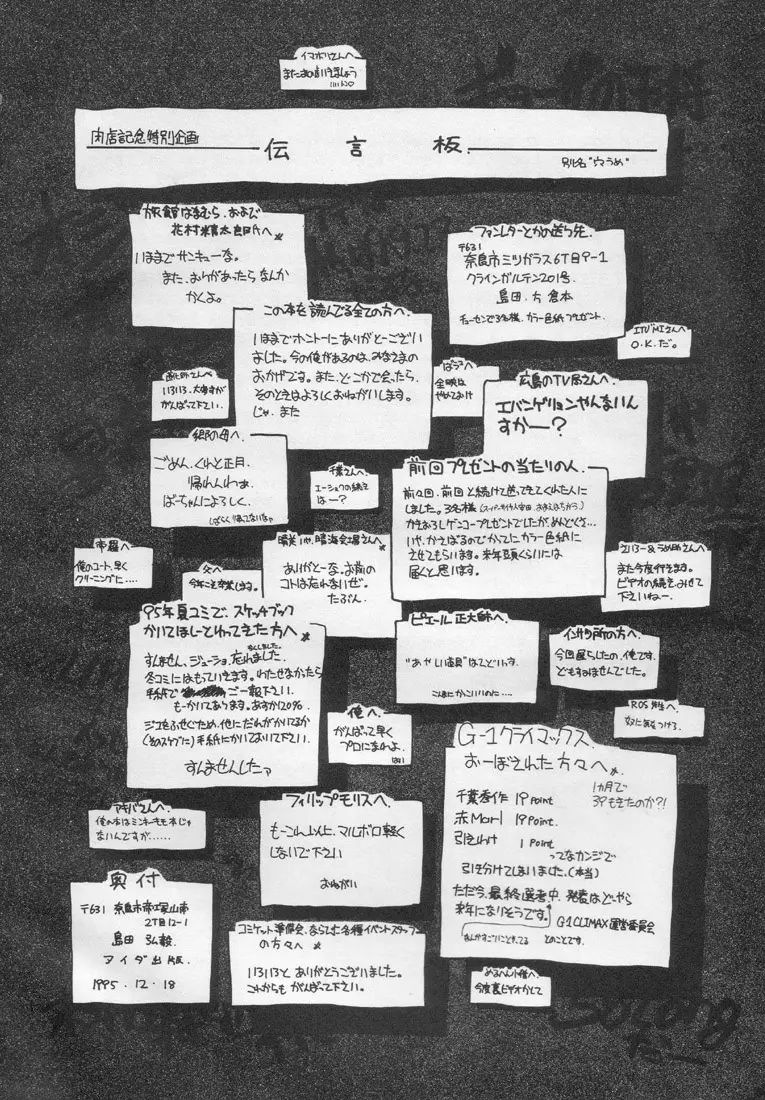 イマホリさんへ
またまのいきましょう
肉店記念特別企画
伝言板
別名"穴うめ"
旅館はまむら、および
花村米精太郎氏へ
いままでサンキューな。
また、おりがあったらなんか
かくよ。
ファンレターとかの送り先
〒631
奈良市ミツガラス6丁目9-1
クラインガルテン201号
島田 方 倉本
チューセンで3名様、カラー色紙プレゼント.
この本を読んでる全ての方へ
いままでホントーにありがとーござい
ました。今の俺があるのは、みなさまの
おかげです。また、どこかで会ったら、
そのときはよろしくおねがいします。
じゃ、また
さんへ
O.K.だ。
さんへ
いろいろ、大変すが
がんばって下さい.
はラへ
全映は
やめておけ
広島のTV局さんへ
エバンゲリョンやんまいん
すかー?
郷の母へ
ごめん、くれと正月、
帰れんわぁ
ばーちゃんによろしく.
しばらく帰ってないなぁ
千葉さんへ
エーシュウの続き
はー?
前回プレゼントの当たりの人
前々回、前回と続けて送ってきてくれた人に
しました。3名様
かまあろしゲンコープレゼントでしたが、めんどくさ…
いや、かさばるのでかってにカラー色紙に
させてもらいます。来年頭くらいには
届くと思います。
帝羅へ
俺のコート、早く
クリーニングに....
父へ
今年こそ卒業します。
晴海会場さんへ
ありがとーな、お前の
コトは忘れないぜ.
たぶん.
まいう一&うめぬさんへ
また今度行きます。
ビデオの続き、みせて
下さいねー.
95年夏コミで、スケッチブック
かいてほしーとわってきた方へ
すんません、ジューショ、忘れました.
冬コミにはもっていきます。わたせなかったら
手紙で ご一報下さい.
もーかいてあります。おすか120%
ジコをふせぐため、他にだれがかいてるか
(そのスケブに)手紙にかいておいて下さい.
すんませんしたァ
ピエール正大師へ
"あやしい道具"はてどいっす.
こんなにかっこいいのに....
インサツ所の方へ
今回落ちしたの、俺です.
どもすみませんでした。
ROS先生へ
奴に気をつけろ.
俺へ
がんばって早く
プロになれよ.
はい
G-1クライマックス
おーぼされた方々へ
1ヵ月で
39もきたのか?!
千葉秀作 19 Point
赤Mari 19 Point
引きわけ 1 Point
ってなカンジで
引き分けてしまいました。(本当)
ただ今、最終選考中、発表はどーやら
来年になりそうです。
G-1 CLIMAX 運営委員会
なんかすごいことになってる とのことです.
アキバさんへ
俺の本はミンキーモモ本じゃ
ないんですが......
フィリップモリスへ
もーこれ以上、マルボロ軽く
しないで下さい
おねがい
奥付
〒631 奈良市帝塚山南
2丁目12-1
島田 弘毅
アイダ出版.
1995.12.18
コミケット準備会、ならびに各種イベントスタッフー
の方々へ
いろいろと、ありがとうございました。
これからも がんばって下さい.
めるへん小僧へ
今度裏ビデオかして